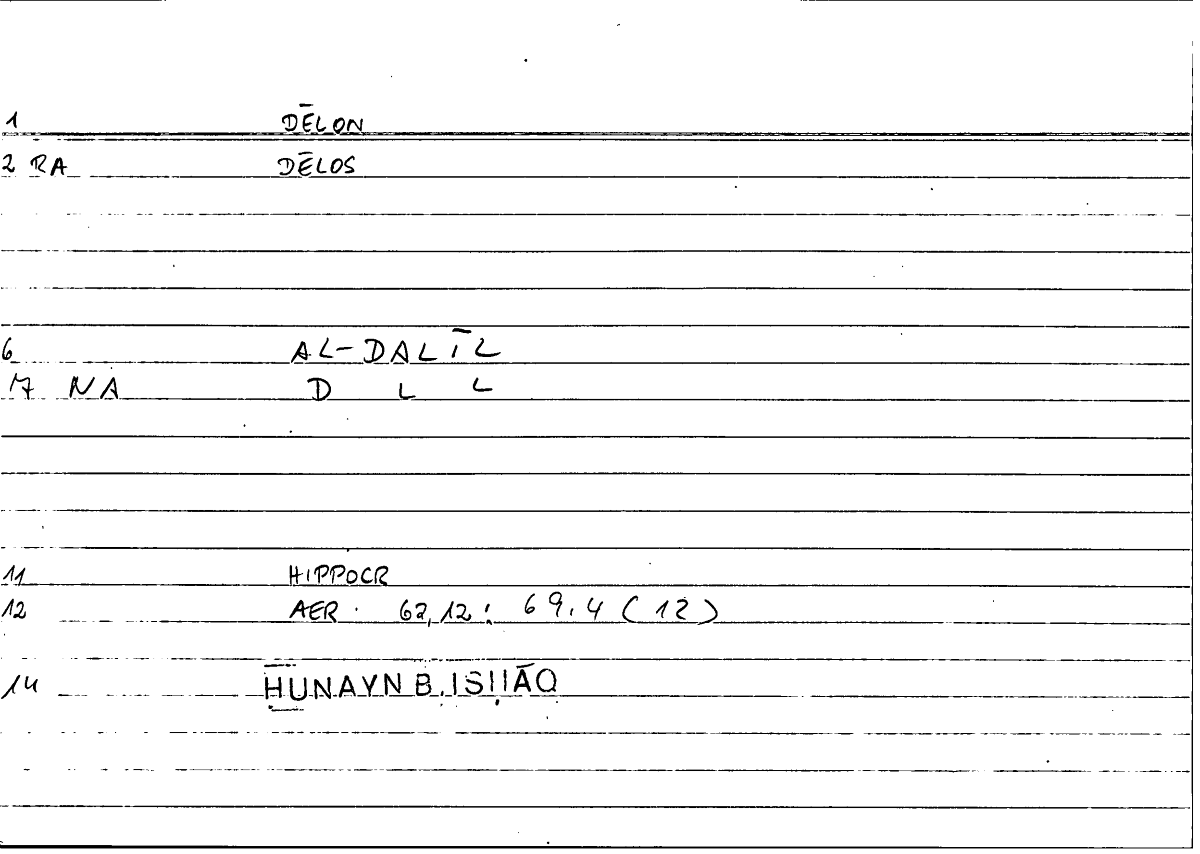 1 DĒLON
2 RA DĒLOS
6 AL-DALĪL
17 NA D L L
11 HIPPOCR
12 AER. 62,12: 69.4 (12)
14 ḤUNAYN B. ISḤĀQ